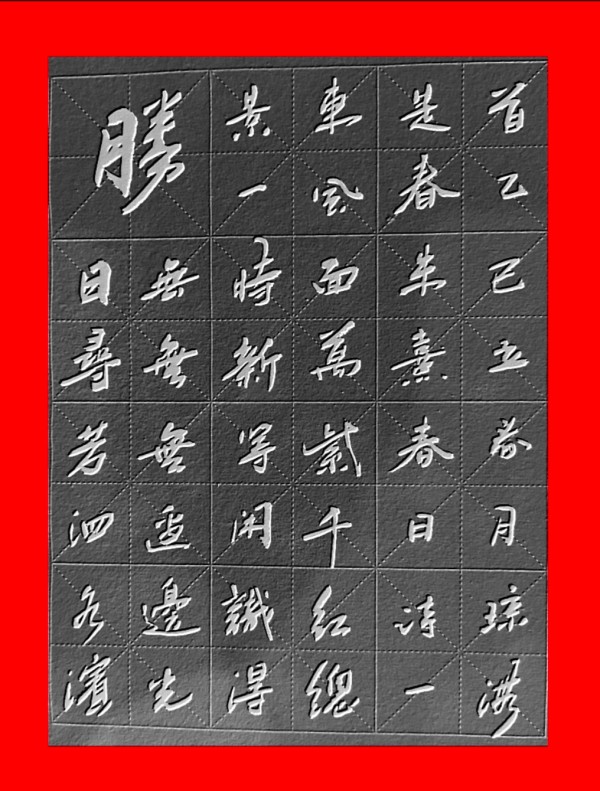 勝日尋芳泗水濱
無無無邊邊光
景一時新等閑識得
東風面萬紫千紅總
是春朱熹春日詩一
首乙巳月琮